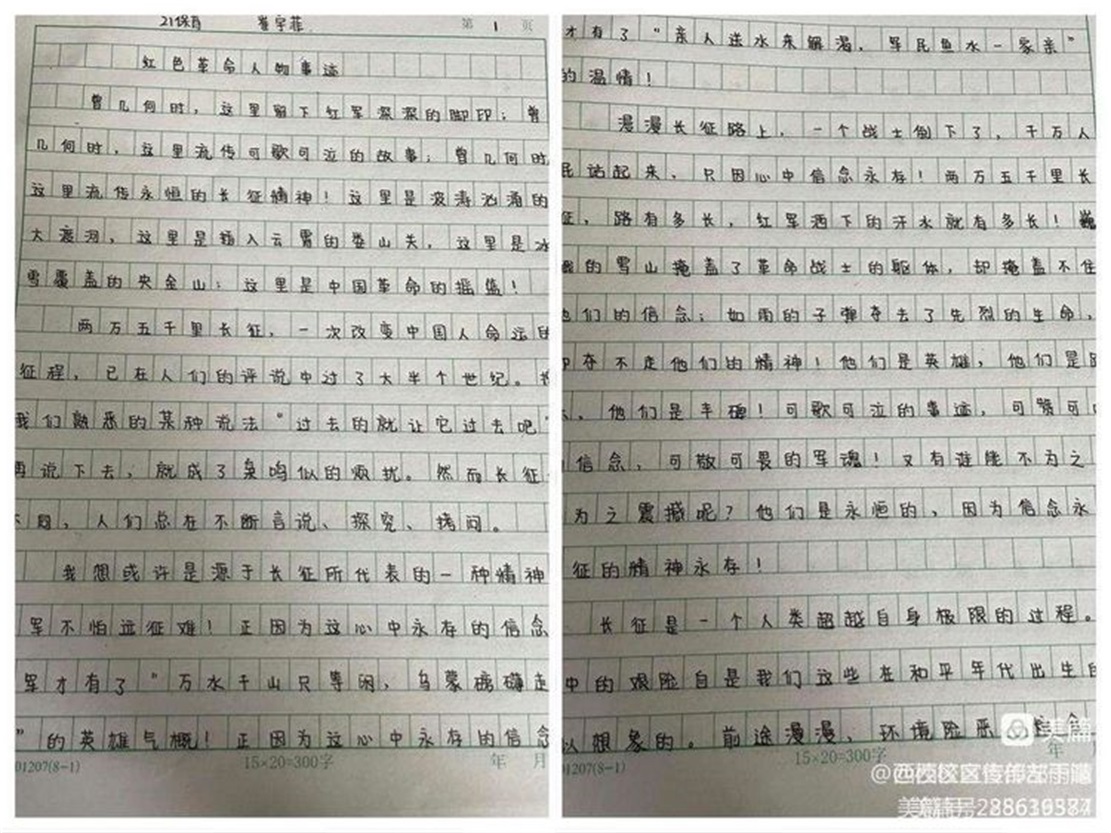 21保育 崔宇菲 第 1 页
红色革命人物事迹
曾几何时，这里留下红军深深的脚印；曾
几何时，这里流传可歌可泣的故事；曾几何时
这里流传永恒的长征精神！这里是波涛汹涌的
大渡河，这里是插入云霄的娄山关，这里是冰
雪覆盖的夹金山；这里是中国革命的摇篮！
两万五千里长征，一次改变中国人命运的
征程，已在人们的评说中过了大半个世纪。
我们熟悉的某种说法“过去的就让它过去吧”
再说下去，就成了枭鸣似的烦扰。然而长征
人们总在不断言说、探究、拷问。
我想或许是源于长征所代表的一种精神
军不怕远征难！正因为这心中永存的信念
军才有了“万水千山只等闲，乌蒙磅礴走
”的英雄气概！正因为这心中永存的信念
01207(8-1) 15×20=300字 年 月
才有了“亲人送水来解渴，军民鱼水一家亲”
的温情！
漫漫长征路上，一个战士倒下了，千万人
民站起来，只因心中信念永存！两万五千里长
征，路有多长，红军洒下的汗水就有多长！巍
峨的雪山掩盖了革命战士的躯体，却掩盖不住
他们的信念；如雨的子弹夺去了先烈的生命，
却夺不走他们的精神！他们是英雄，他们是
他们是丰碑！可歌可泣的事迹，可赞可
信念，可敬可畏的军魂！又有谁能不为之
为之震撼呢？他们是永恒的，因为信念永
征的精神永存！
长征是一个人类超越自身极限的过程。
中的艰险自是我们这些在和平年代出生的
以想象的。前途漫漫、环境险恶
01207(8-1) 15×20=300字 年
美篇